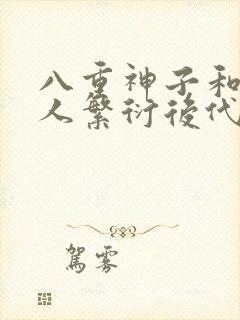 八重神子和
人繁衍後代
駕霧